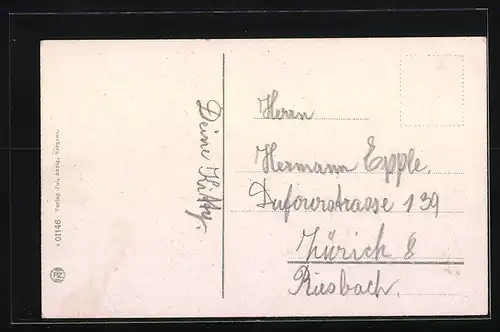 Herrn
Hermann Epple.
Dufourstrasse 139
Zürich 8
Riesbach.
Deine Kitty.
01146 Verlag Jul.